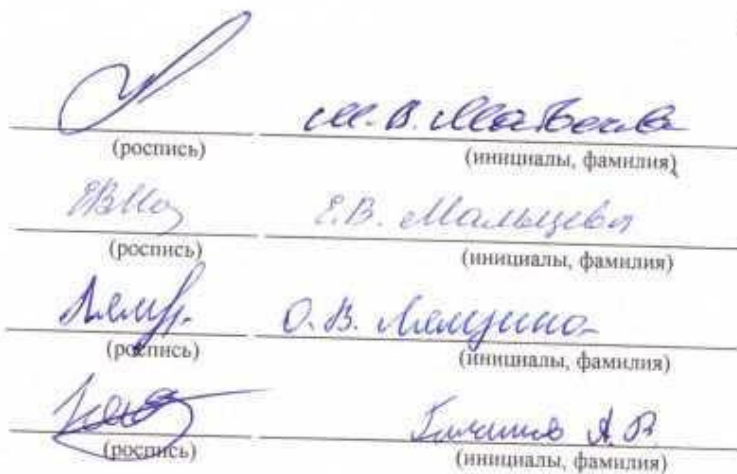 М.В. Матвеева
(роспись) (инициалы, фамилия)
Е.В. Мальцева
(роспись) (инициалы, фамилия)
О.В. Лямзина
(роспись) (инициалы, фамилия)
А.В.
(роспись) (инициалы, фамилия)